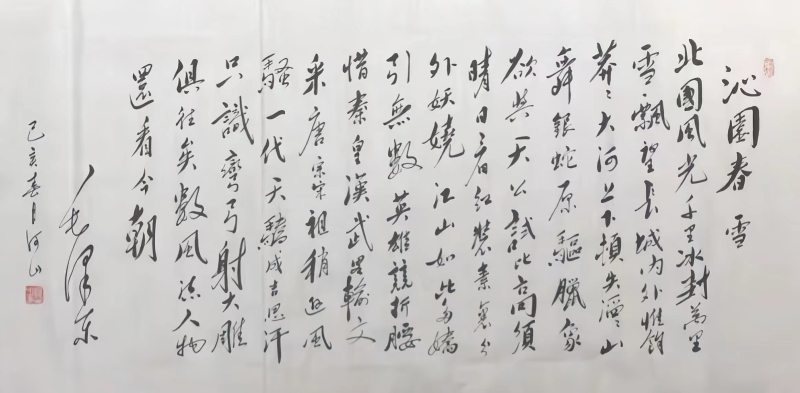 沁園春 雪
北國風光千里冰封萬里
雪飄望長城內外惟餘
莽〻大河上下頓失滔〻山
舞銀蛇原驅臘象
欲與天公試比高須
晴日看紅裝素裹分
外妖嬈江山如此多嬌
引無數英雄競折腰
惜秦皇漢武畧輸文
采唐宗宋祖稍遜風
騷一代天驕成吉思汗
只識彎弓射大雕
俱往矣數風流人物
還看今朝
毛澤東
己亥春月河山